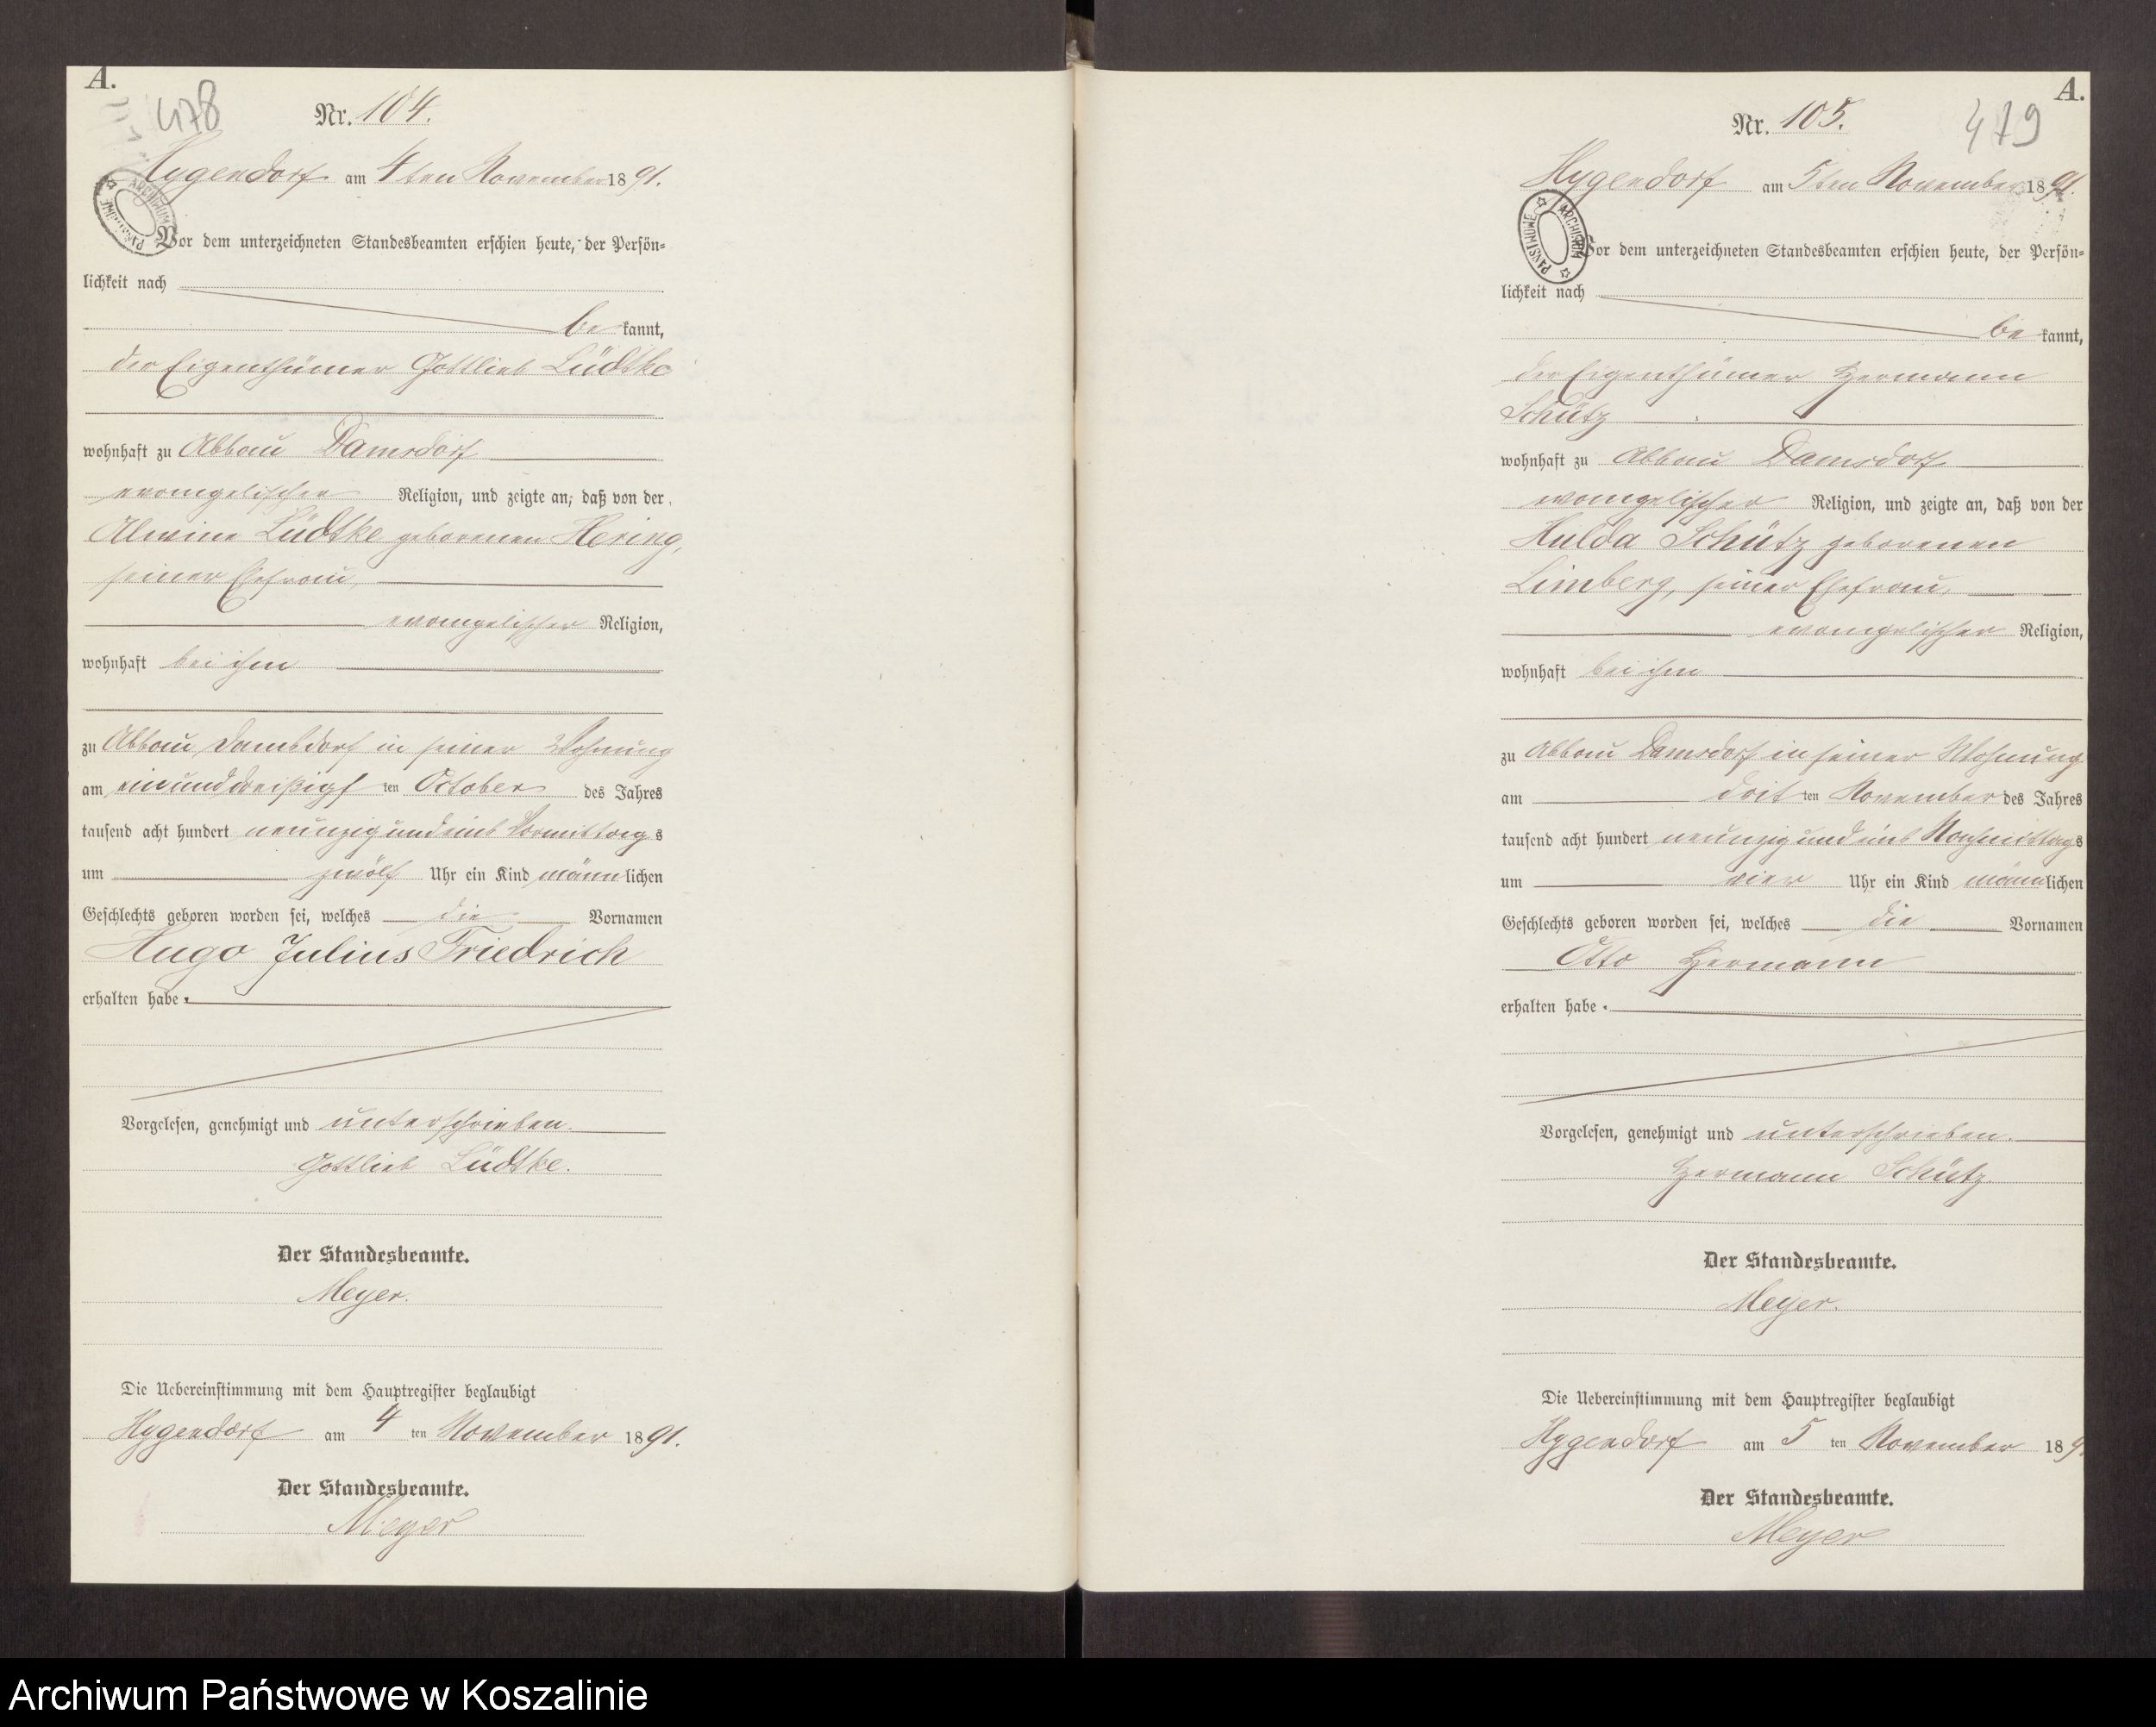 A.
478
Nr. 104.
Hygendorf am 4ten November 1891.
ARCHIWUM PAŃSTWOWE
Vor dem unterzeichneten Standesbeamten erschien heute, der Persön=
lichkeit nach
be kannt,
der Eigenthümer Gottlieb Lüdtke
wohnhaft zu Abbau Damsdorf
evangelischer Religion, und zeigte an, daß von der
Alwine Lüdtke geborenen Hering,
seiner Ehefrau,
evangelischer Religion,
wohnhaft bei ihm
zu Abbau Damsdorf in seiner Wohnung
am einunddreißigs ten October des Jahres
tausend acht hundert neunzig und eins Vormittags
um zwölf Uhr ein Kind männlichen
Geschlechts geboren worden sei, welches die Vornamen
Hugo Julius Friedrich
erhalten habe.
Vorgelesen, genehmigt und unterschrieben.
Gottlieb Lüdtke.
Der Standesbeamte.
Meyer.
Die Uebereinstimmung mit dem Hauptregister beglaubigt
Hygendorf am 4 ten November 1891.
Der Standesbeamte.
Meyer
A.
479
Nr. 105.
Hygendorf am 5ten November 1891.
ARCHIWUM PAŃSTWOWE
Vor dem unterzeichneten Standesbeamten erschien heute, der Persön=
lichkeit nach
be kannt,
der Eigenthümer Hermann
Schütz
wohnhaft zu Abbau Damsdorf
evangelischer Religion, und zeigte an, daß von der
Hulda Schütz geborenen
Limberg, seiner Ehefrau,
evangelischer Religion,
wohnhaft bei ihm
zu Abbau Damsdorf in seiner Wohnung
am drit ten November des Jahres
tausend acht hundert neunzig und eins Nachmittags
um vier Uhr ein Kind männlichen
Geschlechts geboren worden sei, welches die Vornamen
Otto Hermann
erhalten habe.
Vorgelesen, genehmigt und unterschrieben.
Hermann Schütz
Der Standesbeamte.
Meyer.
Die Uebereinstimmung mit dem Hauptregister beglaubigt
Hygendorf am 5 ten November 189
Der Standesbeamte.
Meyer
Archiwum Państwowe w Koszalinie